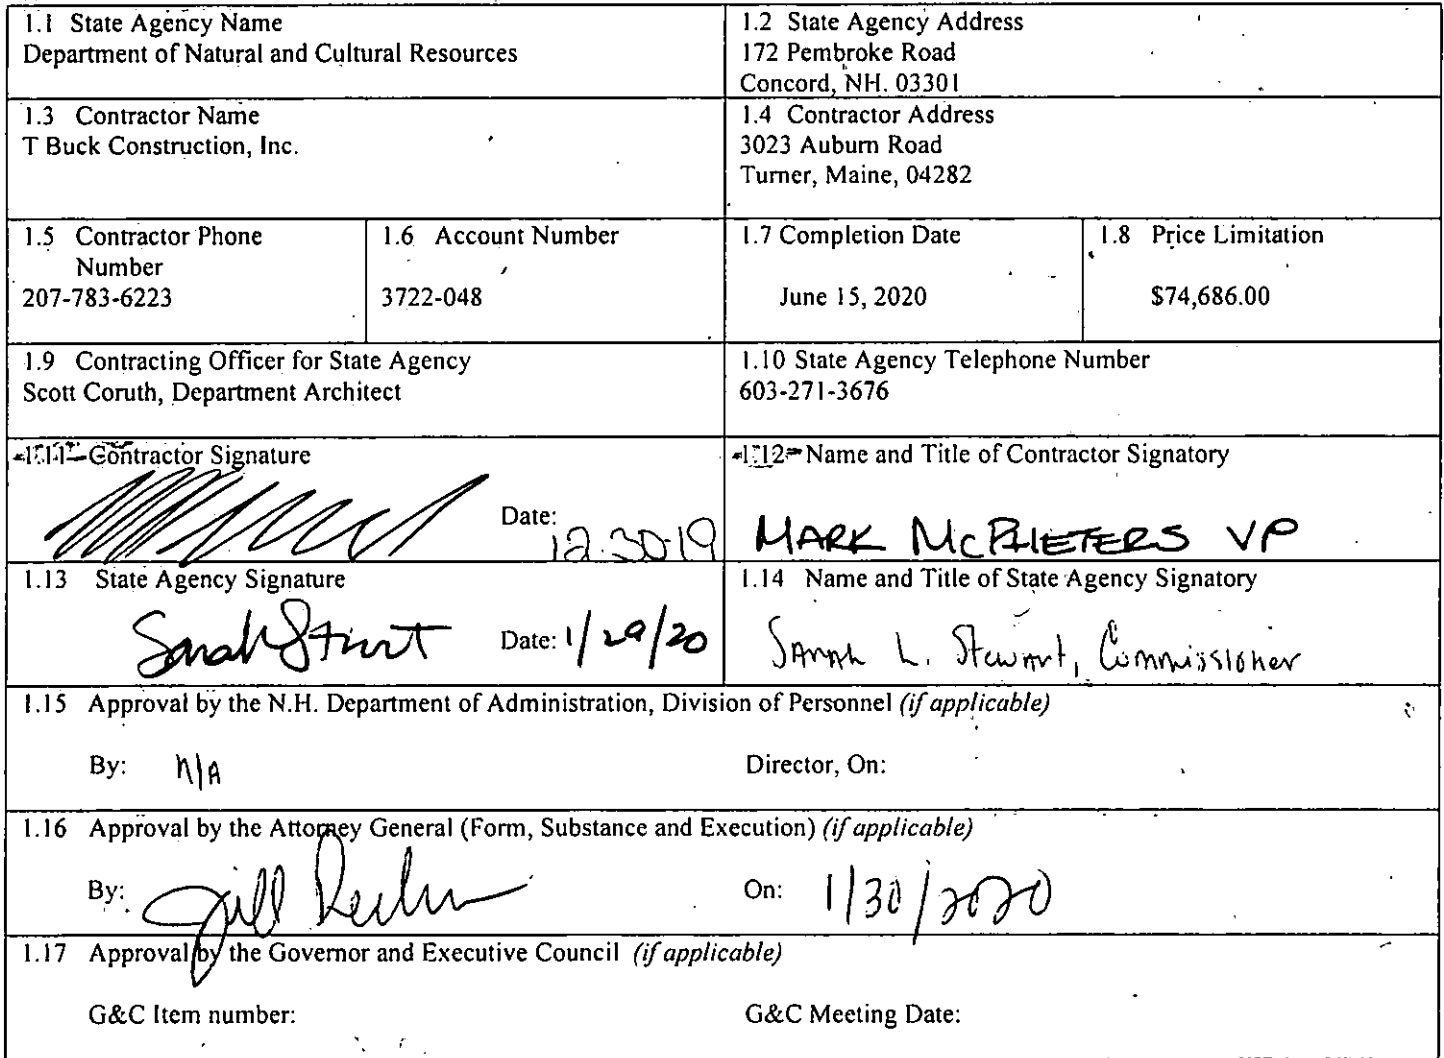 1.1 State Agency Name
Department of Natural and Cultural Resources
1.2 State Agency Address
172 Pembroke Road
Concord, NH. 03301
1.3 Contractor Name
T Buck Construction, Inc.
1.4 Contractor Address
3023 Auburn Road
Turner, Maine, 04282
1.5 Contractor Phone
Number
207-783-6223
1.6 Account Number
3722-048
1.7 Completion Date
June 15, 2020
1.8 Price Limitation
$74,686.00
1.9 Contracting Officer for State Agency
Scott Coruth, Department Architect
1.10 State Agency Telephone Number
603-271-3676
1.11 Contractor Signature
Date: 12.30.19
1.12 Name and Title of Contractor Signatory
MARK MCPHETERS VP
1.13 State Agency Signature
Sarah Stewart Date: 1/29/20
1.14 Name and Title of State Agency Signatory
Sarah L. Stewart, Commissioner
1.15 Approval by the N.H. Department of Administration, Division of Personnel (if applicable)
By: N/A Director, On:
1.16 Approval by the Attorney General (Form, Substance and Execution) (if applicable)
By: Jill On: 1/30/2020
1.17 Approval by the Governor and Executive Council (if applicable)
G&C Item number: G&C Meeting Date: